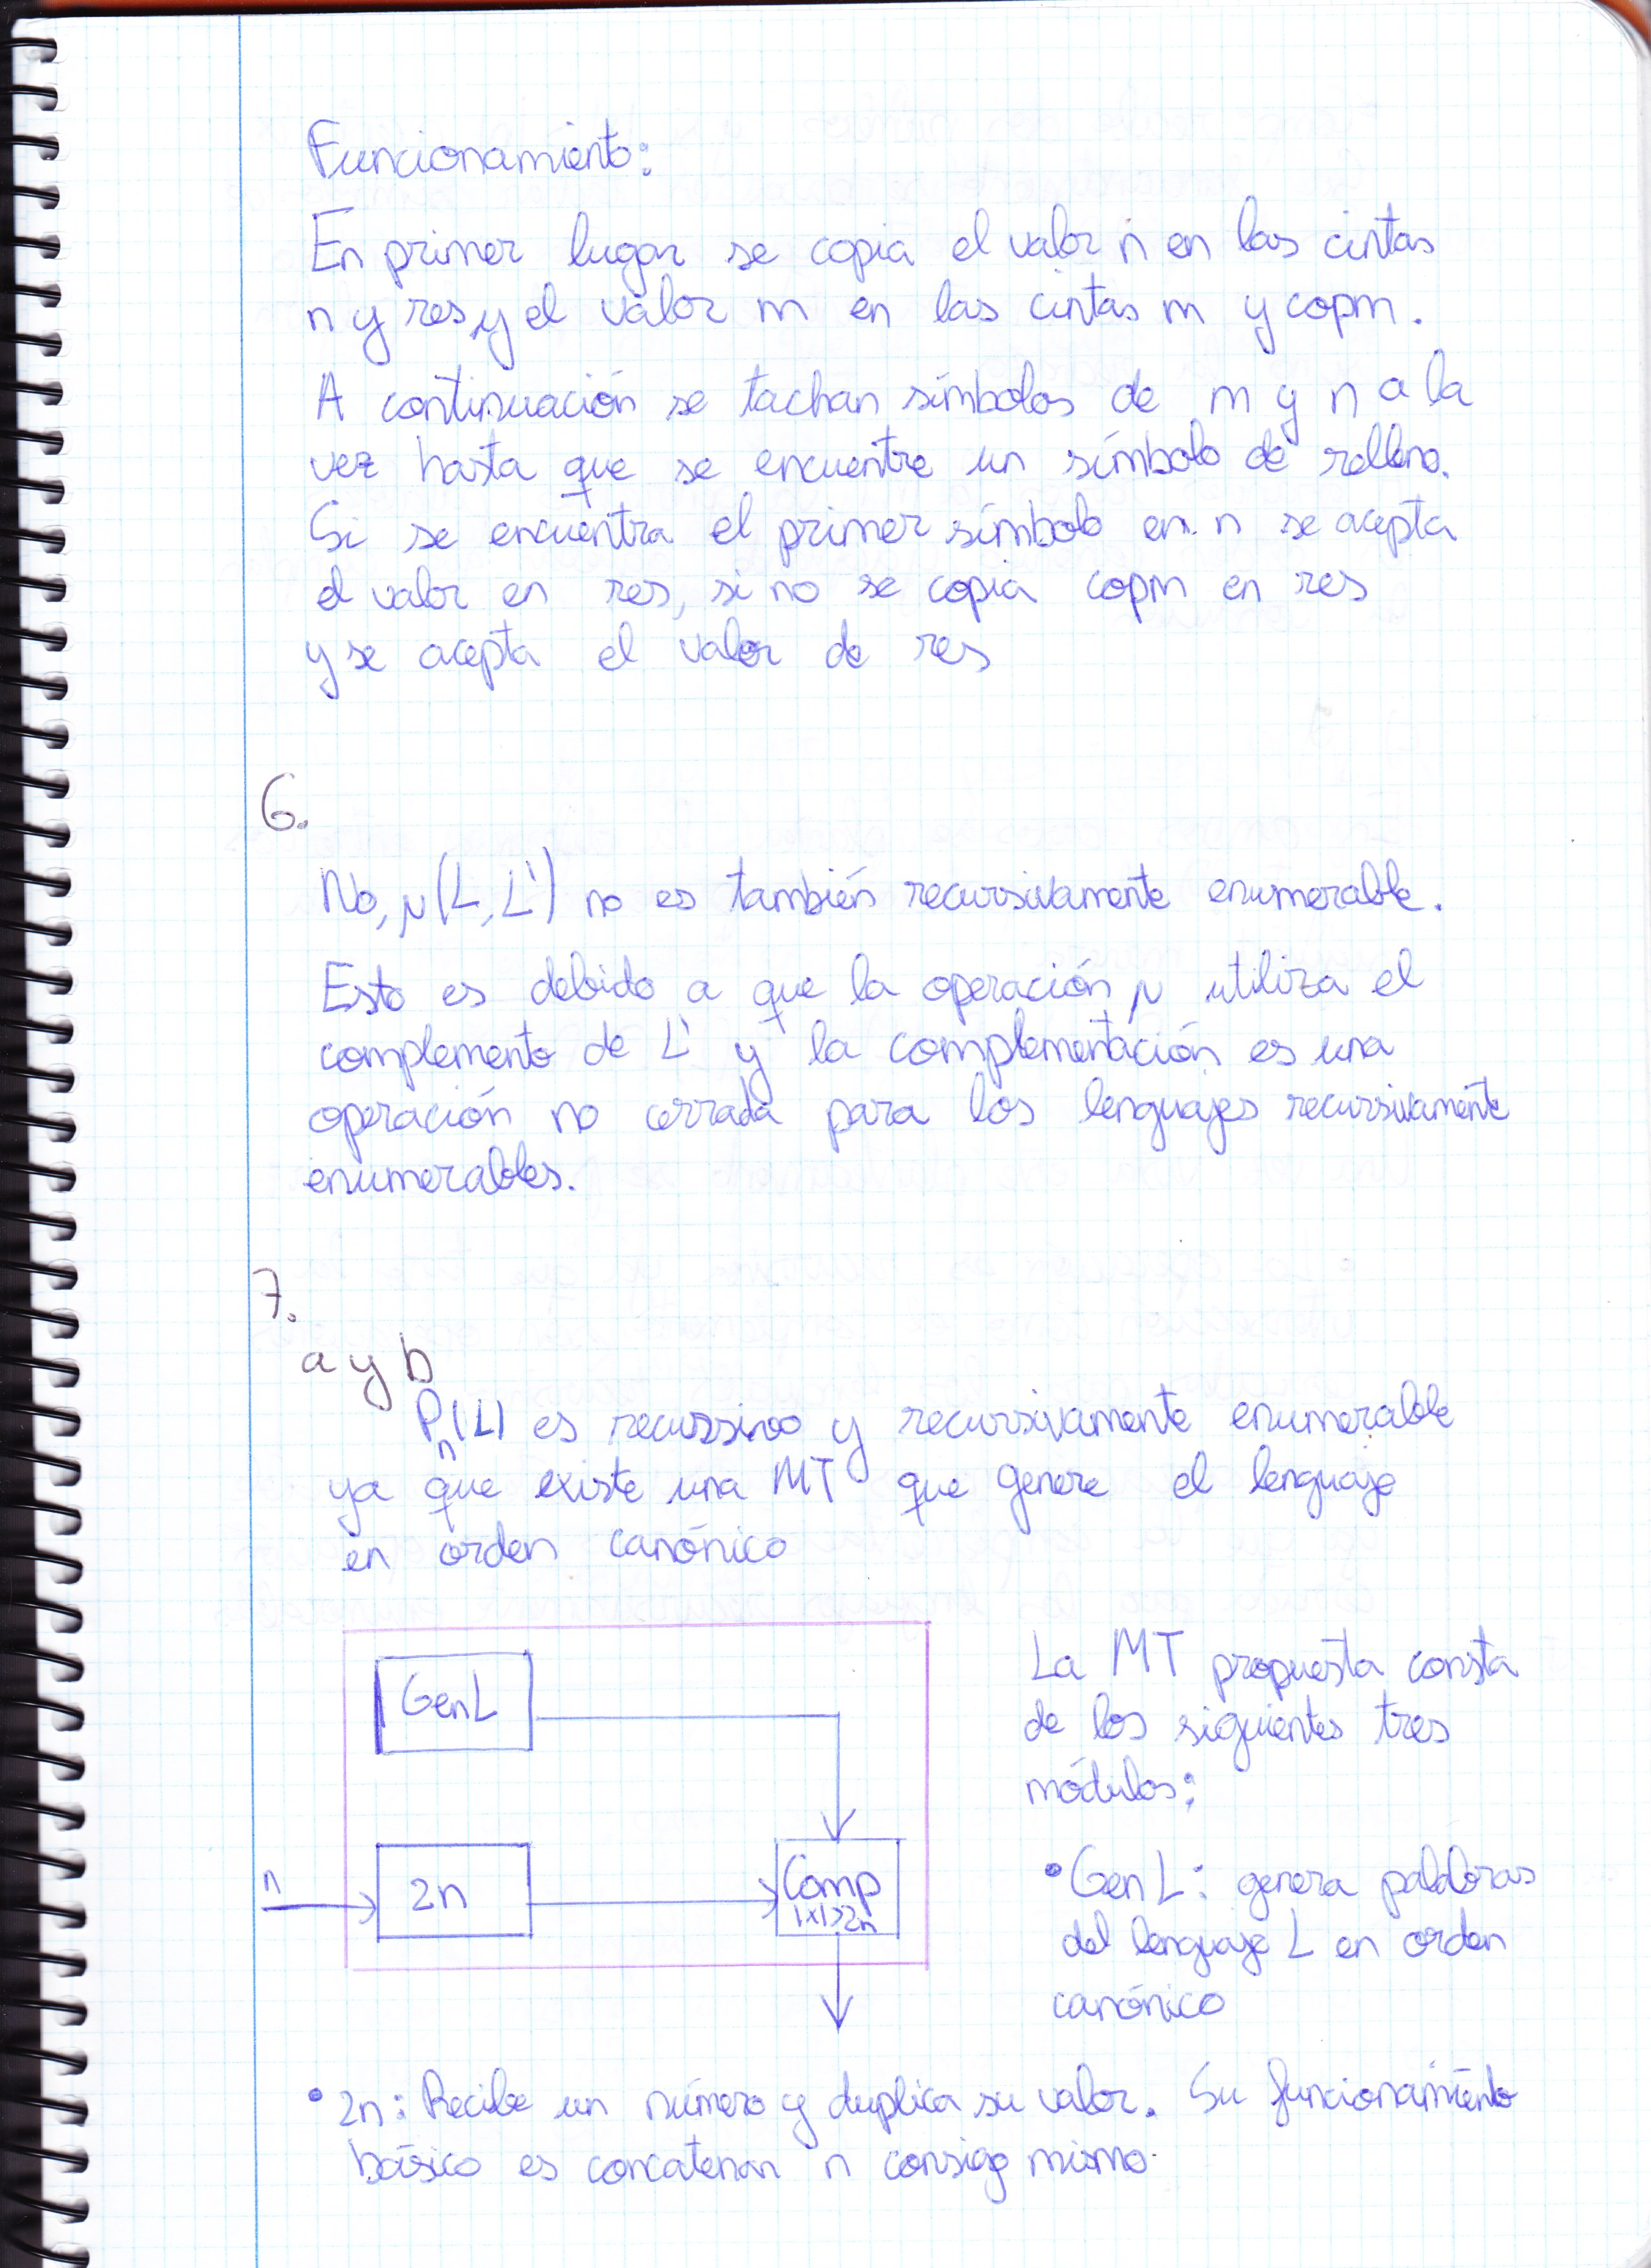 Funcionamiento:
En primer lugar se copia el valor n en las cintas
n y res, y el valor m en las cintas m y copm.
A continuación se tachan símbolos de m y n a la
vez hasta que se encuentre un símbolo de relleno.
Si se encuentra el primer símbolo en n se acepta
el valor en res, si no se copia copm en res
y se acepta el valor de res
6.
No, μ(L, L') no es también recursivamente enumerable.
Esto es debido a que la operación μ utiliza el
complemento de L' y la complementación es una
operación no cerrada para los lenguajes recursivamente
enumerables.
7.
a y b
Pn(L) es recursivo y recursivamente enumerable
ya que existe una MT que genere el lenguaje
en orden canónico
GenL
n
2n
Comp
|x|>2n
La MT propuesta consta
de los siguientes tres
módulos:
• GenL: genera palabras
del lenguaje L en orden
canónico
• 2n: Recibe un número y duplica su valor. Su funcionamiento
básico es concatenar n consigo mismo.